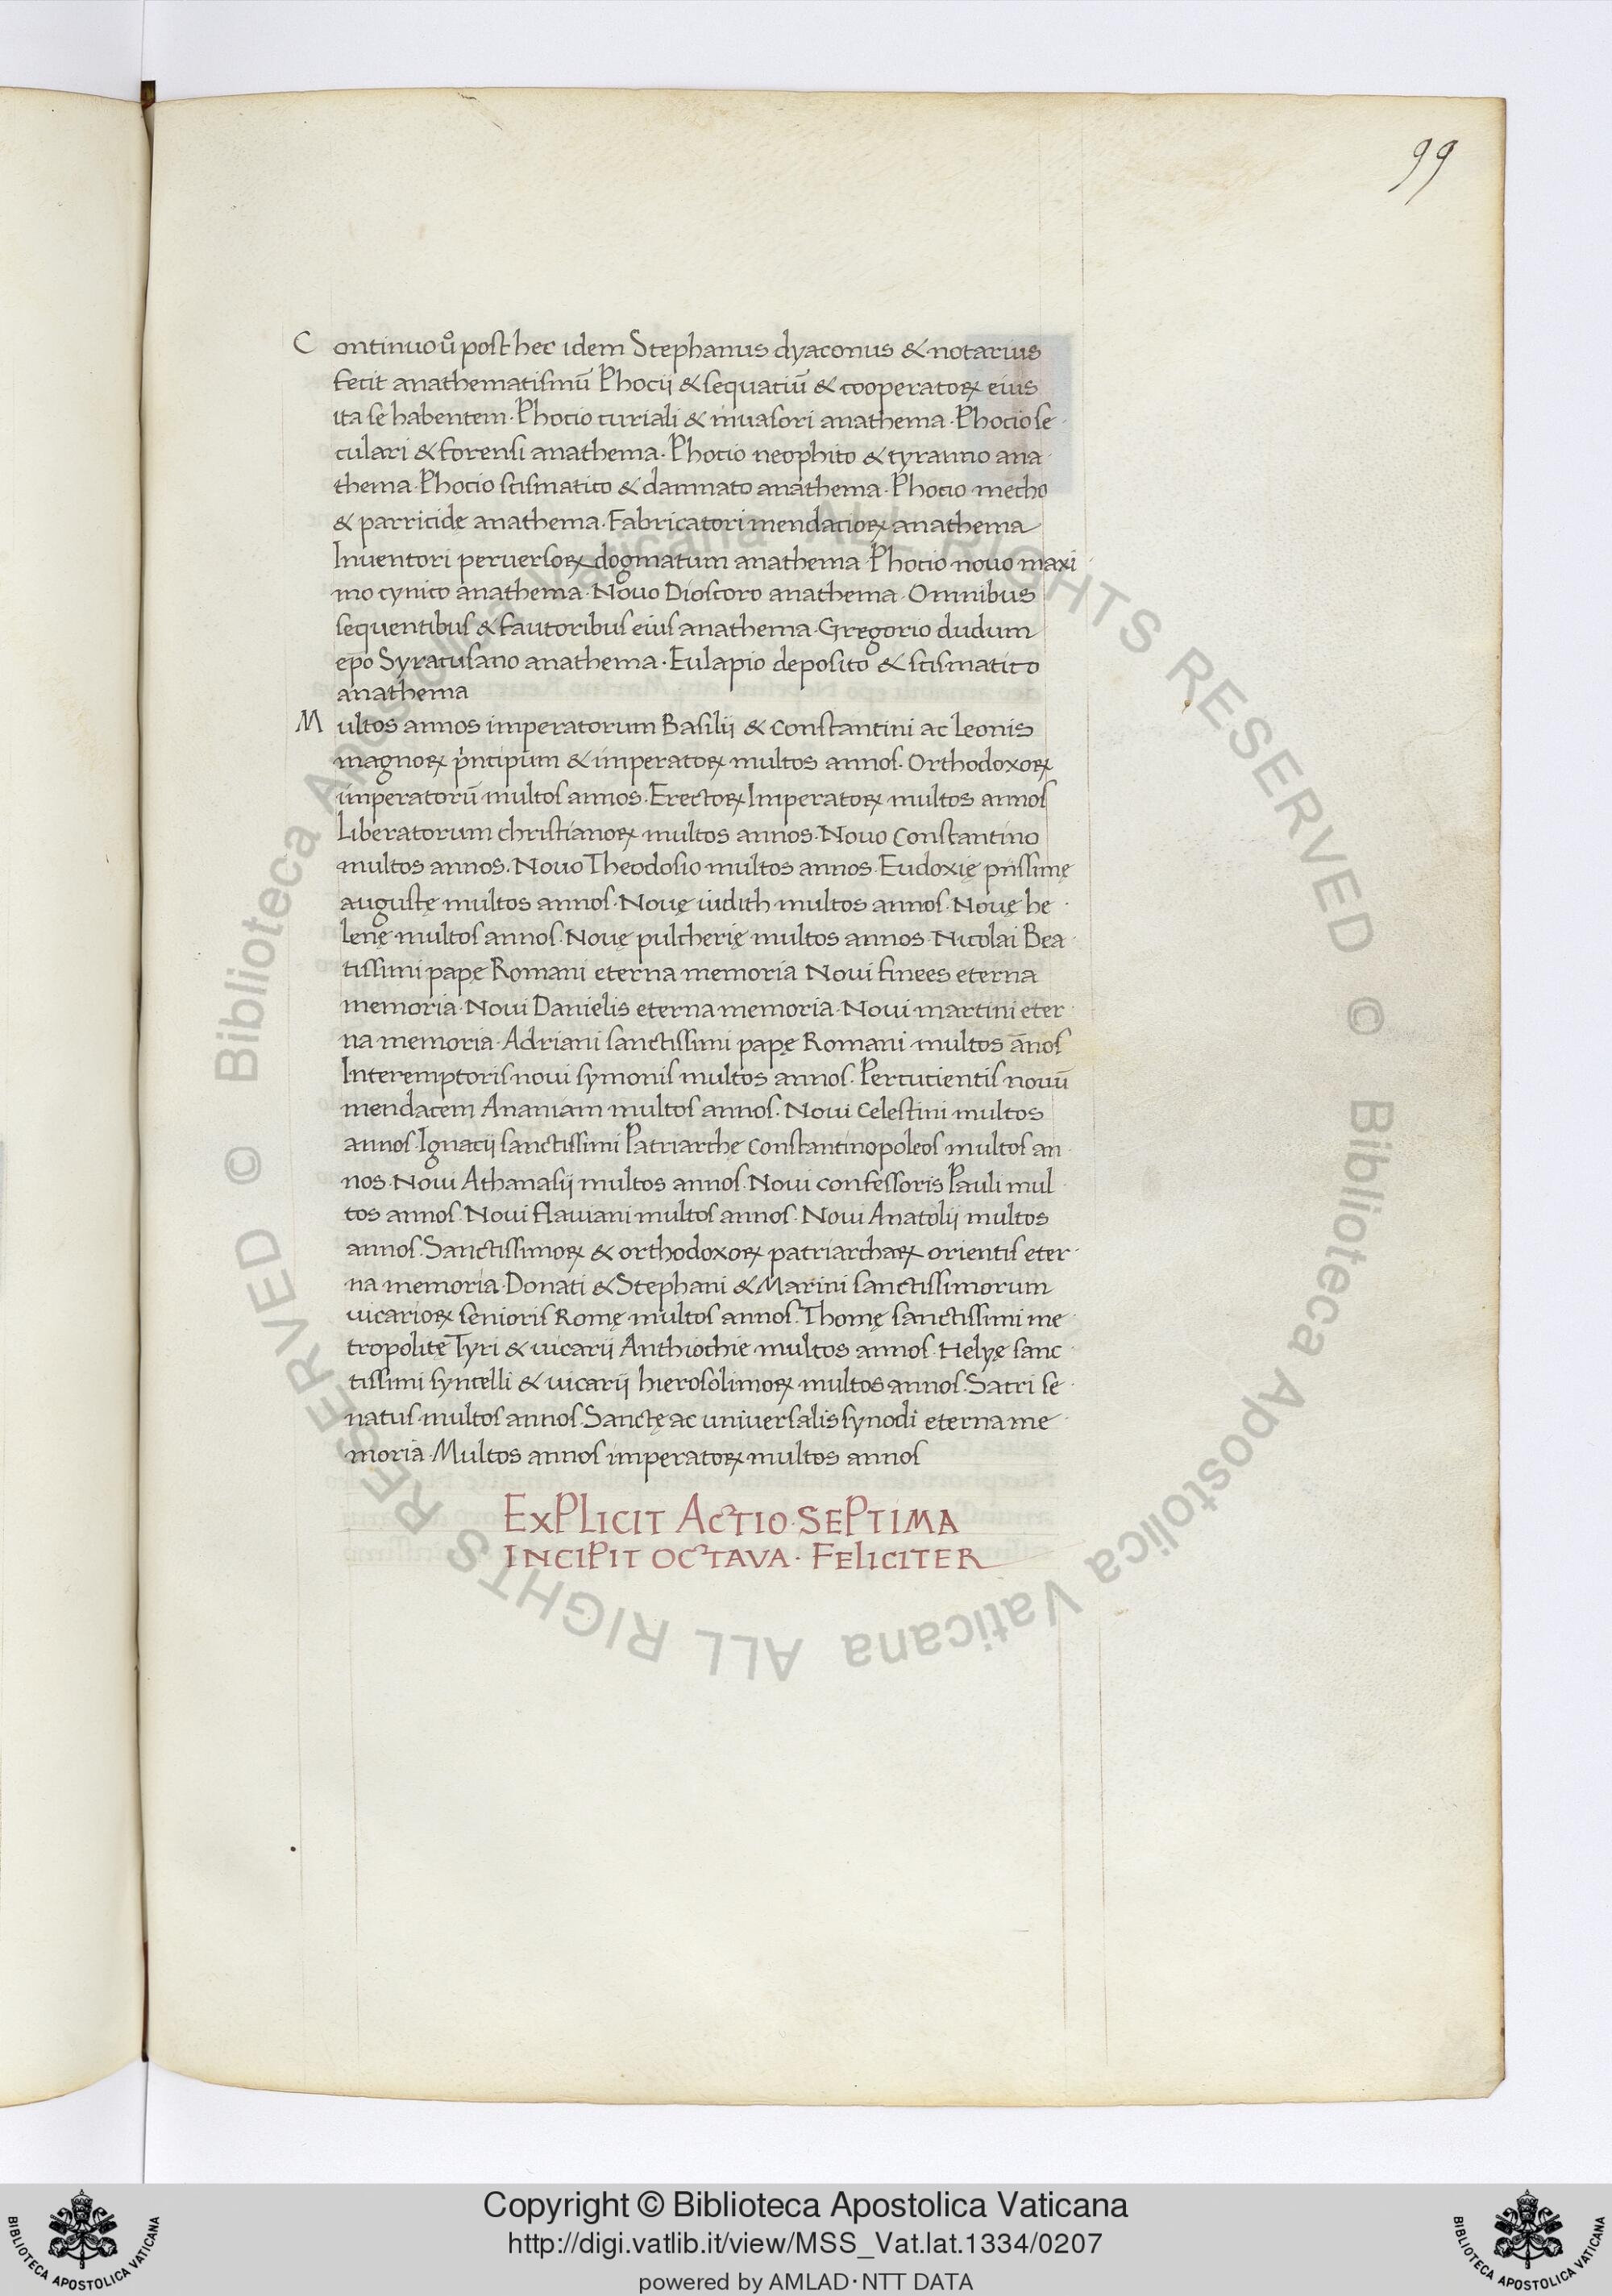 99
Continuo uͦ post hec idem Stephanus dyaconus & notarius
fecit anathematismū Phocij & sequatiū & cooperatoꝝ eius
ita se habentem · Phocio curiali & invasori anathema · Phocio se
culari & forensi anathema · Phocio neophito & tyranno ana
thema · Phocio scismatico & damnato anathema · Phocio mecho
& parricidę anathema · Fabricatori mendacioꝝ anathema
Inventori perversoꝝ dogmatum anathema Phocio novo maxi
mo cynico anathema · Novo Dioscoro anathema · Omnibus
sequentibus & fautoribus eius anathema · Gregorio dudum
epo Syracusano anathema · Eulapio deposito & scismatico
anathema
Multos annos imperatorum Basilij & Constantini ac Leonis
magnoꝝ pͥncipum & imperatoꝝ multos annos · Orthodoxoꝝ
imperatorū multos annos · Erectoꝝ Imperatoꝝ multos annos
Liberatorum christianoꝝ multos annos · Novo Constantino
multos annos · Novo Theodosio multos annos · Eudoxię piissimę
augustę multos annos · Novę iudith multos annos · Novę he
lenę multos annos · Novę pulcherię multos annos · Nicolai Bea
tissimi papę Romani eterna memoria Novi finees eterna
memoria · Novi Danielis eterna memoria · Novi martini eter
na memoria · Adriani sanctissimi papę Romani multos ān̄os
Interemptoris novi symonis multos annos · Percutientis novū
mendacem Ananiam multos annos · Novi Celestini multos
annos · Ignacij sanctissimi Patriarchę Constantinopoleos multos an
nos · Novi Athanasij multos annos · Novi confessoris Pauli mul
tos annos · Novi flaviani multos annos · Novi Anatolij multos
annos · Sanctissimoꝝ & orthodoxoꝝ patriarchaꝝ orientis eter
na memoria · Donati & Stephani & Marini sanctissimorum
vicarioꝝ senioris Romę multos annos · Thomę sanctissimi me
tropolite Tyri & vicarij Anthiochie multos annos · Helyę sanc
tissimi syncelli & vicarij hierosolimoꝝ multos annos · Sacri se
natus multos annos · Sanctę ac universalis synodi eterna me
moria · Multos annos imperatoꝝ multos annos
EXPLICIT ACTIO · SEPTIMA
INCIPIT OCTAVA · FELICITER
© Biblioteca Apostolica Vaticana ALL RIGHTS RESERVED © Biblioteca Apostolica Vaticana ALL RIGHTS RESERVED
Copyright © Biblioteca Apostolica Vaticana
http://digi.vatlib.it/view/MSS_Vat.lat.1334/0207
powered by AMLAD·NTT DATA
BIBLIOTECA APOSTOLICA VATICANA
BIBLIOTECA APOSTOLICA VATICANA